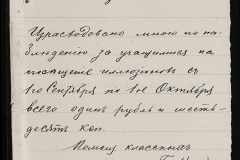 Израсходовано мною по на-
блюденію за учащимися на
посѣщеніе иллюзіоновъ съ
1го Сентября по 1е Октября
всего одинъ рубль и шесть-
десятъ коп.
Помощ. классныхъ